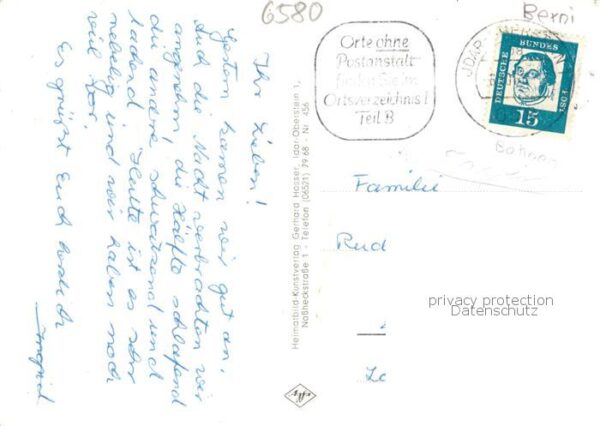 6580
Berni
Orte ohne
Postanstalt
finden Sie im
Ortsverzeichnis!
Teil B
DEUTSCHE BUNDESPOST
15
Familie
Rud
Le
privacy protection
Datenschutz
Heimatbild-Kunstverlag Gerhard Hosser, Idar-Oberstein 1,
Naßheckstraße 1 - Telefon (06521) 79 68 - Nr. 456
Agfa
Ihr Lieben!
Gestern kamen wir gut an,
Auch die Nacht verbrachten wir
angenehm, die Hälfte schlafend
die andere schwatzend und
lachend. Heute ist es sehr
nebelig und wir haben noch
viel vor.
Es grüßt Euch herzlich
Ingrid